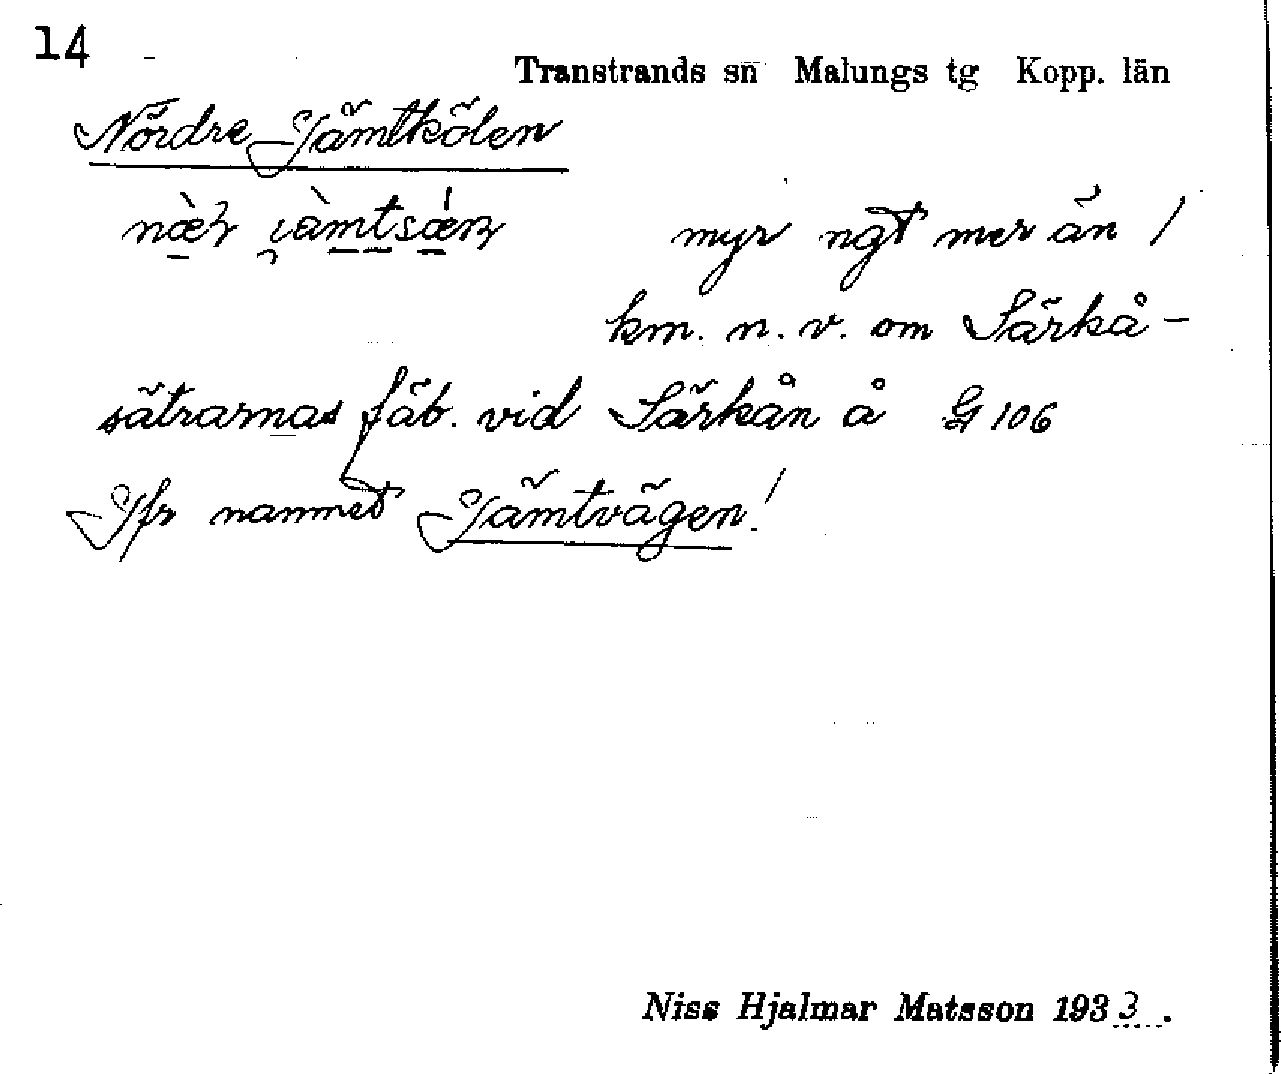 14
Transtrands sn Malungs tg Kopp. län
Nördre Jämtkölen
myr ngt mer än 1
km. n. v. om Särkå-
sätrarnas fäb. vid Särkån å G 106
Jfr namnet Jämtvägen!
Niss Hjalmar Matsson 1933.